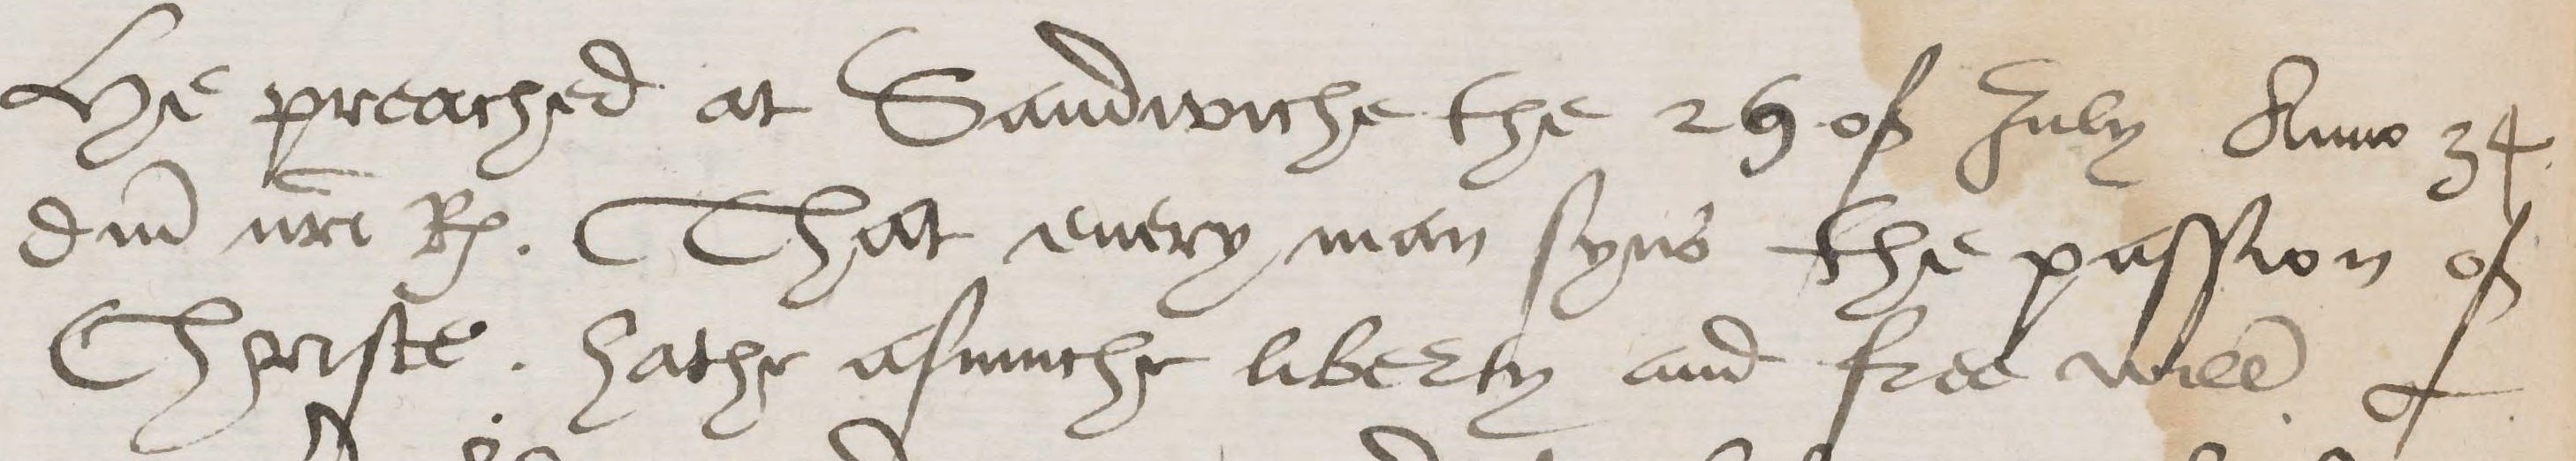 He preached at Sandwiche the 29 of July Anno 34.
dm̄ nr̄i R. That euery man syns the passion of
Christe. hathe asmuche liberty and free will